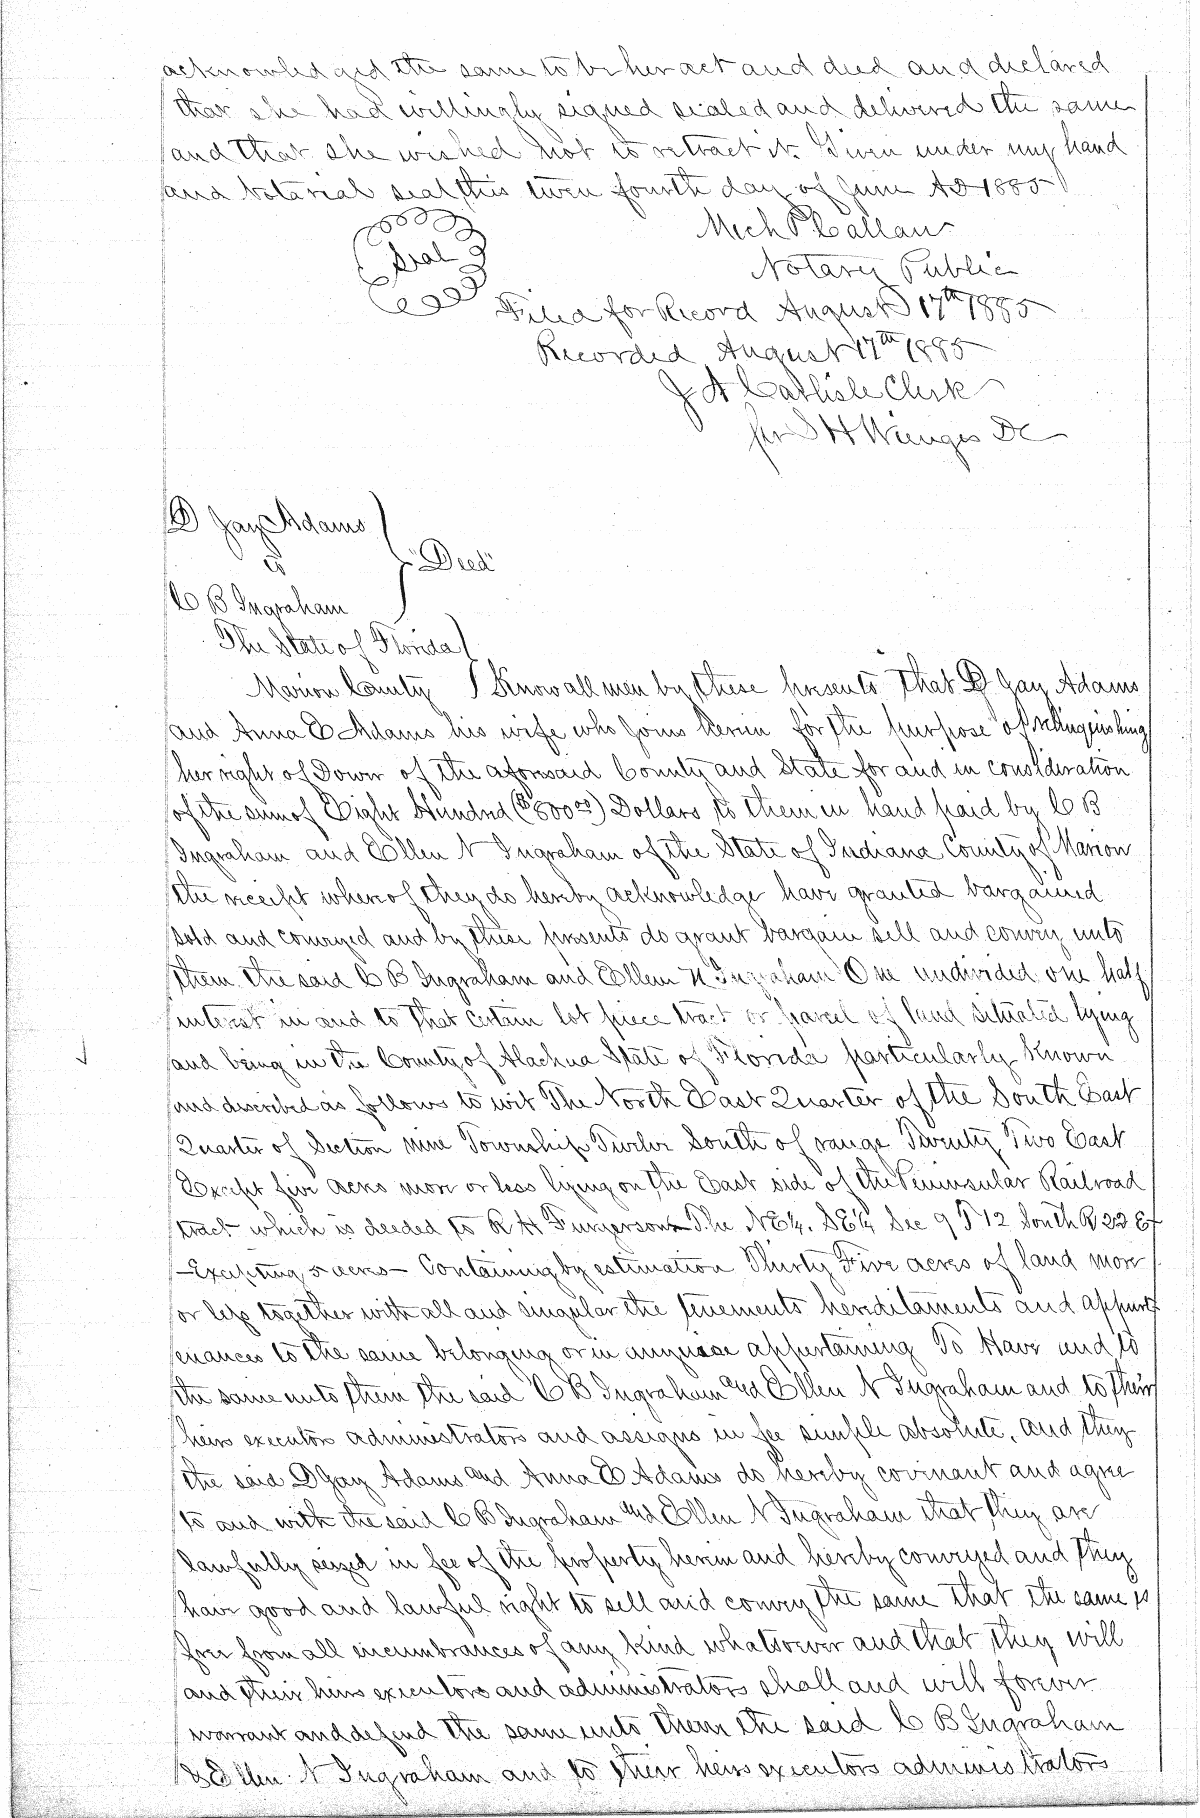 acknowledged the same to be her act and deed and declared
that she had willingly signed sealed and delivered the same
and that she wished not to retract it. Given under my hand
and Notarial seal this twen fourth day of June AD 1885
Seal
Mech P Callan
Notary Public
Filed for Record August 17th 1885
Recorded August 17th 1885
J A Carlisle Clerk
per S H Wienges DC
D Gay Adams
to
"Deed"
C B Ingraham
The State of Florida
Marion County Know all men by these presents That D Gay Adams
and Anna E Adams his wife who joins herein for the purpose of relinquishing
her right of Dower of the aforesaid County and State for and in consideration
of the sum of Eight Hundred ($800 00) Dollars to them in hand paid by C B
Ingraham and Ellen N Ingraham of the State of Indiana County of Marion
the receipt whereof they do hereby acknowledge have granted bargained
sold and conveyed and by these presents do grant bargain sell and convey unto
them the said C B Ingraham and Ellen N Ingraham One undivided one half
interest in and to that certain lot piece tract or parcel of land situated lying
and being in the County of Alachua State of Florida particularly Known
and described as follows to wit The North East Quarter of the South East
Quarter of Section nine Township Twelve South of range Twenty Two East
Except five acres more or less lying on the East side of the Peninsular Railroad
tract which is deeded to R H Furgerson The NE¼ SE¼ Sec 9 T 12 South R 22 E
—Excepting 5 acres— Containing by estimation Thirty Five acres of land more
or less together with all and singular the tenements hereditaments and appurt
enances to the same belonging or in anywise appertaining To Have and to
the same unto them the said C B Ingraham and Ellen N Ingraham and to their
heirs executors administrators and assigns in fee simple absolute. And they
the said D Gay Adams and Anna E Adams do hereby covinant and agree
to and with the said C B Ingraham and Ellen N Ingraham that they are
lawfully seized in fee of the property herein and hereby conveyed and they
have good and lawful right to sell and convey the same that the same is
free from all incumbrances of any Kind whatsoever and that they will
and their heirs executors and administrators shall and will forever
warrant and defend the same unto them the said C B Ingraham
& Ellen N Ingraham and to their heirs executors administrators